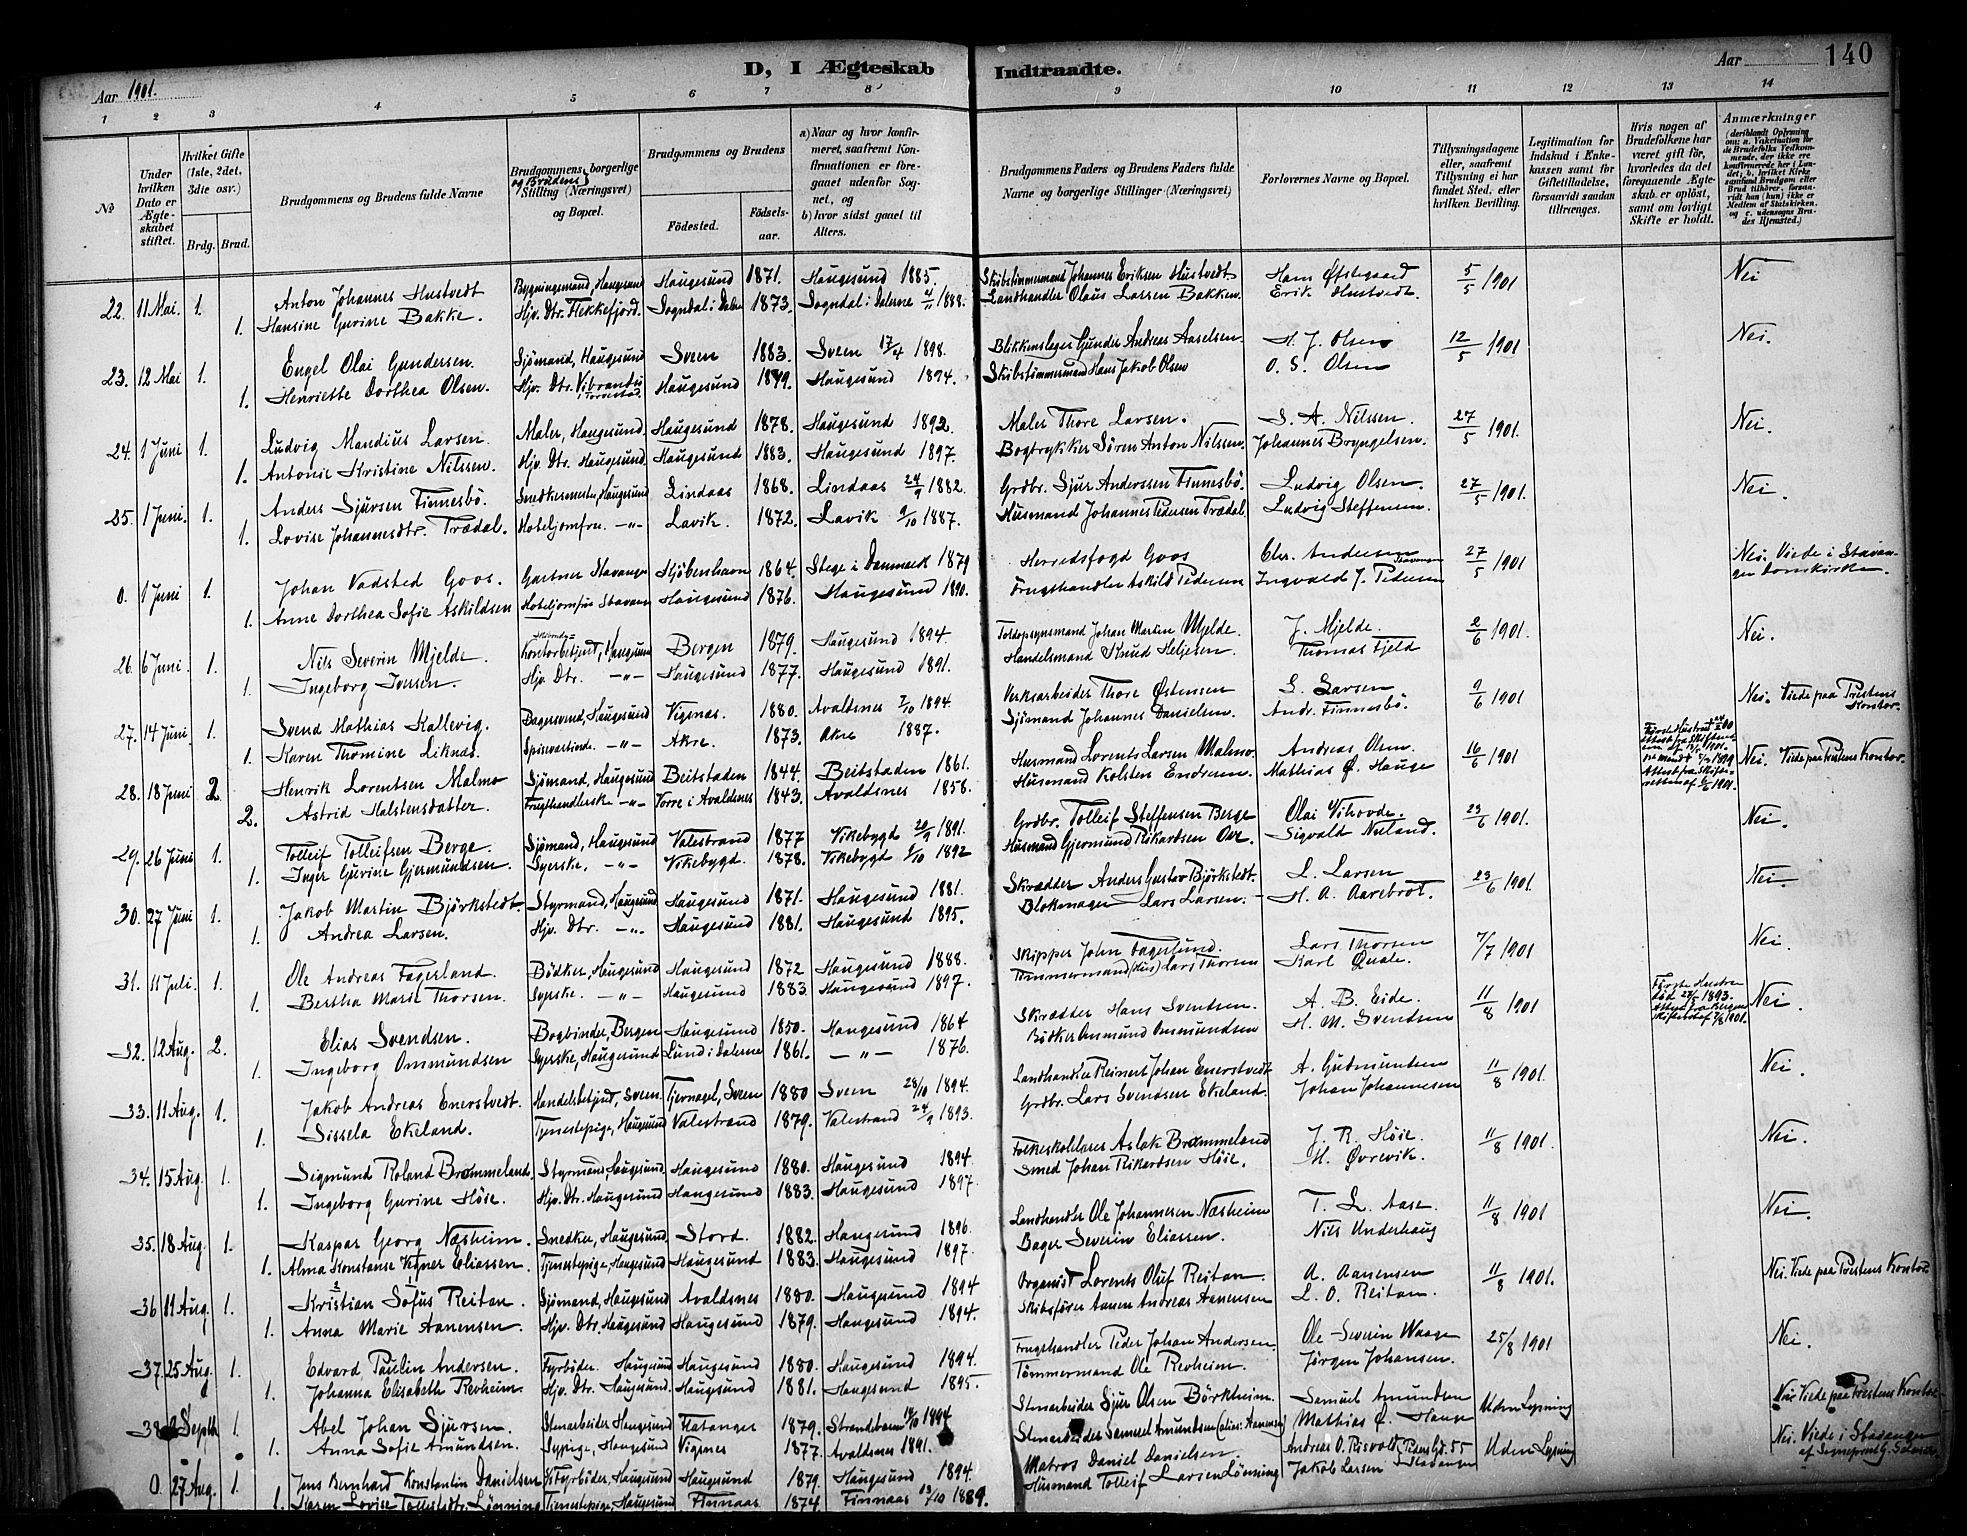 D, I Ægteskab Indtraadte.
Aar 1901.
Aar 140
1 2 3 4 5 6 7 8 9 10 11 12 13 14
№
Under hvilken Dato er Ægteskabet stiftet.
Hvilket Gifte (1ste, 2det, 3die osv.)
Brdg. Brud.
Brudgommens og Brudens fulde Navne
Brudgommens og Brudens borgerlige Stilling (Næringsvet) og Bopæl.
Brudgommens og Brudens
Fødested.
Fødselsaar.
a) Naar og hvor konfirmeret, saafremt Konfirmationen er foregaaet udenfor Sognet, og
b) hvor sidst gaaet til Alters.
Brudgommens Faders og Brudens Faders fulde Navne og borgerlige Stillinger (Næringsvet)
Forlovernes Navne og Bopæl.
Tillysningsdagene eller, saafremt Tillysning ei har fundet Sted, efter hvilken Bevilling.
Legitimation for Indskud i Enkekassen samt for Giftetilladelse, forsaavidt saadan tiltrænges.
Hvis nogen af Brudefolkene har været gift før, hvorledes da det foregaaende Ægteskab er opløst, samt om lovligt Skifte er holdt.
Anmærkninger
22. 11 Mai. 1. Anton Johannes Hustvedt Bygningsmand, Haugesund Haugesund 1871. Haugesund 1885. Skibstimmermand Johannes Eriksen Hustvedt Hans Østegaard 5/5 1901 Nei
1. Hansine Gurine Bakke. Hjv. Dtr. Flekkefjord. Sogndal i Dalerne 1873. Sogndal i Dalerne 1888. Landhandler Olaus Larsen Bakken. Erik Hustvedt.
23. 12 Mai 1. Engel Olai Gundersen. Sjömand, Haugesund Sveen 1883. Sveen 17/4 1898. Blikkenslager Gunder Andreas Aaselsen H. J. Olsen 12/5 1901 Nei.
1. Henriette Dorthea Olsen. Hjv. Dtr. Vibrandsö i Torvestad. Haugesund 1879. Haugesund 1894. Skibstimmermand Hans Jakob Olsen O. S. Olsen
24. 1 Juni 1. Ludvig Mandius Larsen. Maler, Haugesund. Haugesund 1878. Haugesund 1892. Maler Thore Larsen. S. A. Nilssen. 27/5 1901. Nei.
1. Antonie Kristine Nilssen. Hjv. Dtr. Haugesund. Haugesund 1883. Haugesund 1897. Bogtrykker Sören Anton Nilssen. Johannes Bryngelsen.
25. 1 Juni. 1. Anders Sjursen Finnesbö. Snedkermester, Haugesund Lindaas 1868. Lindaas 24/9 1882. Grdbr. Sjur Anderssen Finnesbö. Ludvig Olsen. 27/5 1901. Nei.
1. Lovise Johannesdtr. Trædal. Hoteljomfru. -"- Lavik. 1872. Lavik 9/10 1887. Husmand Johannes Pedersen Trædal Ludvig Steffensen.
0. 1 Juni 1. Johan Vadsted Goos. Gartner Stavanger Kjöbenhavn 1864. Stege i Danmark 1879 Herredsfogd Goos Chr. Andersen Stavanger 27/5 1901 Nei. Viede i Stavanger Domkirke.
1. Anne Dorthea Sofie Askildsen Hoteljomfru Stavanger Haugesund 1876. Haugesund 1890. Frugthandler Askild Pedersen Ingvald J. Pedersen
26. 6 Juni. 1. Nils Severin Mjelde. Kontorbetjent, Haugesund Bergen 1879. Haugesund 1894. Toldopsynsmand Johan Martin Mjelde. J. Mjelde. 2/6 1901. Nei.
1. Ingeborg Iversen. Hjv. Dtr. -"- Haugesund 1877. Haugesund 1891. Handelsmand Knud Heljesen. Thomas Fjeld
27. 14 Juni. 1. Svend Mathias Kallevig. Bagersvend, Haugesund Vigsnæs. 1880. Avaldsnes 7/10 1894. Verksarbeider Thore Østensen L. Larsen 9/6 1901 Nei. Viede paa Prestens Kontor.
1. Karen Thomine Liknæs. Spisevartinde. -"- Akre. 1873. Akre 1887. Sjömand Johannes Danielsen. Andr. Finnesbö.
28. 18 Juni 2. Henrik Lorentsen Malmo Sjömand, Haugesund Beitstaden 1844. Beitstaden 1861. Husmand Lorents Larsen Malmo. Andreas Olsen. 16/6 1901 Nei. Viede paa Prestens Kontor.
2. Astrid Halstensdatter. Frugthandlerske -"- Vorre i Avaldsnes 1843. Avaldsnes 1858. Husmand Kolsten Endresen. Mathias Ø. Hauge
29. 26 Juni 1. Tolleif Tolleifsen Berge. Sjömand, Haugesund Valestrand 1877 Vikebygd 20/9 1891. Grdbr. Tolleif Steffensen Berge Olai Vihovde. 23/6 1901. Nei.
1. Inger Gurine Gjermundsen. Syerske. -"- Vikebygd. 1878. Vikebygd 1892 Husmand Gjermund Rikardsen Ove. Sigvald Nesland.
30. 27 Juni 1. Jakob Martin Björkstedt. Styrmand, Haugesund Haugesund 1871. Haugesund 1881. Skrædder Anders Gustav Björkstedt. L. Larsen 23/6 1901. Nei.
1. Andrea Larsen. Hjv. Dtr. -"- Haugesund 1881. Haugesund 1895. Blokmager Lars Larsen. H. A. Aarebrot.
31. 11 Juli. 1. Ole Andreas Fagerland. Bödker, Haugesund Haugesund 1872 Haugesund 1888. Skipper John Fagerlund. Lars Thorsen 7/7 1901 Nei.
1. Bertha Marie Thorsen. Syerske. -"- Haugesund 1883. Haugesund 1897. Tømmermand (Hus) Lars Thorsen Karl Qvale.
32. 12 Aug. 2. Elias Svendsen. Bogbinder, Bergen Haugesund 1850. Haugesund 1864 Skrædder Hans Svendsen A. B. Eide. 11/8 1901 Første Hustru död 1893. Nei.
1. Ingeborg Ommundsen Syerske, Haugesund Lund i Dalerne 1861. -"- 1876. Bödker Ommund Ommundsen H. M. Svendsen
33. 11 Aug. 1. Jakob Andreas Enerstvedt. Handelsbetjent, Sveen. Tjernagel, Sveen 1880 Sveen 28/10 1894. Landhandler Reinert Johan Enerstvedt A. Gudmundsen 11/8 1901. Nei.
1. Sissela Ekeland. Tjenestepige, Haugesund Valestrand 1879. Valestrand 24/9 1893. Grdbr. Lars Svendsen Ekeland. Johan Johannesen
34. 15 Aug. 1. Sigmund Roland Brommeland Styrmand, Haugesund. Haugesund 1880. Haugesund 1894. Folkeskolelærer Aslak Brommeland J. R. Höie. 11/8 1901. Nei.
1. Ingeborg Gurine Höie. Hjv. Dtr. Haugesund Haugesund 1883. Haugesund 1897. Smed Johan Rikardsen Höie. M. Øvrevik.
35. 18 Aug. 1. Kaspar Georg Næsheim. Snedker, Haugesund Stord. 1882. Haugesund 1896. Landhandler Ole Johannesen Næsheim T. L. Aase. 11/8 1901 Nei.
1. Alma Konstanse Vigner Eliassen. Tjenestepige, Haugesund Haugesund 1883. Haugesund 1897. Bager Severin Eliassen. Nils Underhaug
36 11 Aug. 1. Kristian Sofus Reitan. Sjömand, Haugesund Avaldsnes 1880. Haugesund 1894 Organist Lorents Oluf Reitan. A. Aanensen 11/8 1901. Nei. Viede paa Prestens Kontor
1. Anna Marie Aanensen. Hjv. Dtr. Haugesund Haugesund 1879. Haugesund 1894. Skibsfører Aanen Andreas Aanensen L. O. Reitan.
37. 25 Aug. 1. Edvard Paulin Andersen. Fyrböder. Haugesund Haugesund 1880. Haugesund 1894. Frugthandler Peder Johan Andersen. Ole Severin Waage 25/8 1901 Nei.
1. Johanna Elisabeth Revheim. Hjv. Dtr. Haugesund. Haugesund 1881. Haugesund 1895. Tömmermand Ole Revheim. Jörgen Johansen.
38. 2 Septb 1. Abel Johan Sjursen. Stenarbeider Haugesund Flatanger 1879. Strandebarm 1894 Stenarbeider Sjur Olsen Börkheim. Samuel Amundsen Uden Lysning Nei Viede paa Prestens Kontor
1. Anna Sofie Amundsen. Sypige, Haugesund Vigsnes 1877. Avaldsnes 1891. Stenarbeider Samuel Amundsen (alias: Aanensen) Mathias Ø. Hauge
0. 27 Aug. 1. Jens Bernhard Konstantin Danielsen Fyrböder, Haugesund Haugesund 1879. Haugesund 1894. Matros Daniel Danielsen. Andreas O. Risvold, Pedersgd. 55 Stavanger Uden Lysning Nei. Viede i Stavanger
1. Karen Lovise Tollefsdtr. Lönning Tjenestepige, Haugesund Finnaas 1874 Finnaas 13/10 1889. Husmand Tolleif Larsen Lönning Jakob Larsen